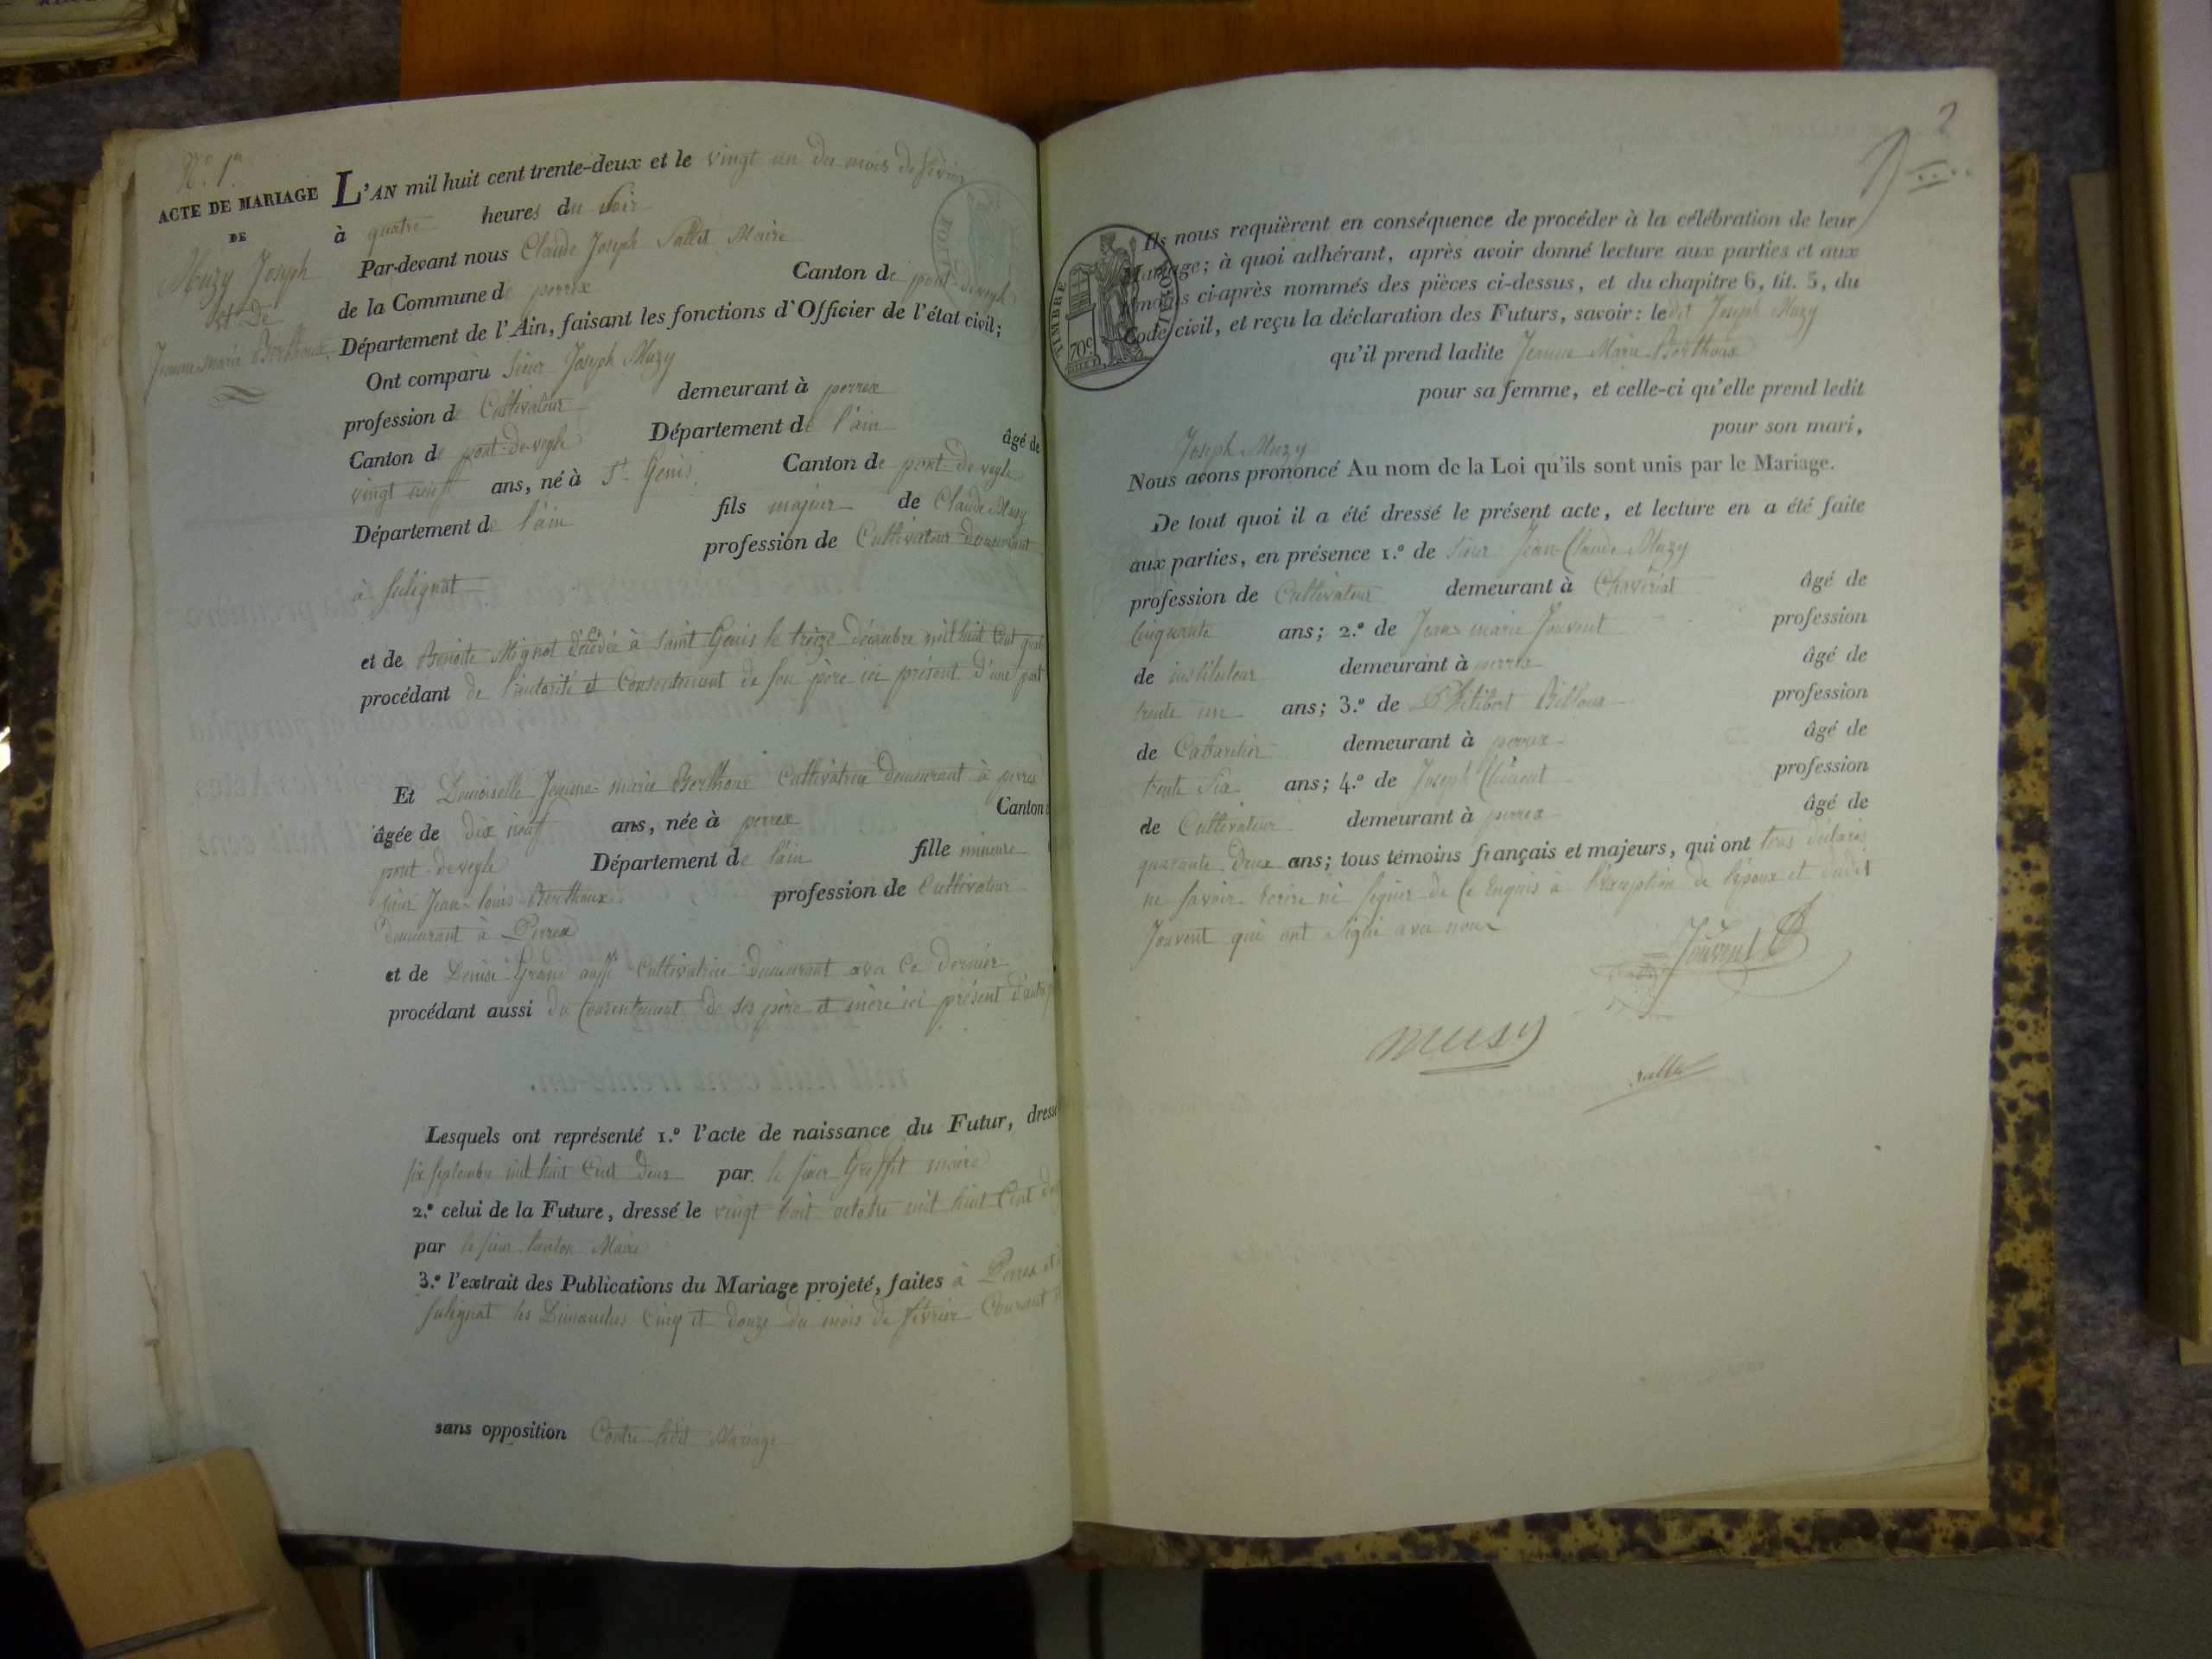 N.o 1.er
ACTE DE MARIAGE
DE
Muzy Joseph
et De
Jeanne-marie Berthoux.
L'AN mil huit cent trente-deux et le vingt un du mois de février
à quatre heures du soir
Par-devant nous Claude Joseph Maire
de la Commune de perrex Canton de pont-de-veyle
Département de l'Ain, faisant les fonctions d'Officier de l'état civil;
Ont comparu sieur Joseph Muzy
profession de Cultivateur demeurant à perrex
Canton de pont-de-veyle Département de l'ain âgé de
vingt neuf ans, né à St Genis Canton de pont-de-veyle
Département de l'ain fils majeur de Claude Muzy
profession de Cultivateur demeurant
à Sulignat
et de Benoite Mignot Décédée à Saint Genis le treize décembre mil huit Cent
procédant de l'autorité et Consentement de son père ici présent d'une part
Et Demoiselle Jeanne-marie Berthoux Cultivatrice demeurant à perrex
âgée de dix neuf ans, née à perrex Canton
pont-de-veyle Département de l'ain fille mineure
sieur Jean-louis Berthoux profession de Cultivateur
demeurant à Perrex
et de Denise Grand aussi Cultivatrice demeurant avec ce dernier
procédant aussi du Consentement de ses père et mère ici présent d'autre
Lesquels ont représenté 1.º l'acte de naissance du Futur, dressé
six Septembre mil huit Cent Deux par le sieur Greffet maire
2.º celui de la Future, dressé le vingt huit octobre mil huit Cent
par le sieur Maire
3.º l'extrait des Publications du Mariage projeté, faites à Perrex et
Sulignat les Dimanches Cinq et douze du mois de février Courant
sans opposition Contre ledit Mariage
2
TIMBRE ROYAL
70c
Ils nous requièrent en conséquence de procéder à la célébration de leur
Mariage; à quoi adhérant, après avoir donné lecture aux parties et aux
témoins ci-après nommés des pièces ci-dessus, et du chapitre 6, tit. 5, du
Code civil, et reçu la déclaration des Futurs, savoir: ledit Joseph Muzy
qu'il prend ladite Jeanne Marie Berthoux
pour sa femme, et celle-ci qu'elle prend ledit
Joseph Muzy pour son mari,
Nous avons prononcé Au nom de la Loi qu'ils sont unis par le Mariage.
De tout quoi il a été dressé le présent acte, et lecture en a été faite
aux parties, en présence 1.º de sieur Jean-Claude Muzy
profession de Cultivateur demeurant à Chavériat âgé de
Cinquante ans; 2.º de Jean-marie Jouvent profession
de instituteur demeurant à perrex âgé de
trente un ans; 3.º de Philibert Billoux profession
de Cabaretier demeurant à perrex âgé de
trente six ans; 4.º de Joseph Clément profession
de Cultivateur demeurant à perrex âgé de
quarante Deux ans; tous témoins français et majeurs, qui ont tous déclaré
ne savoir écrire ni signer de Ce Enquis à l'exception de l'époux et dudit
Jouvent qui ont signé avec nous
Jouvent
musy